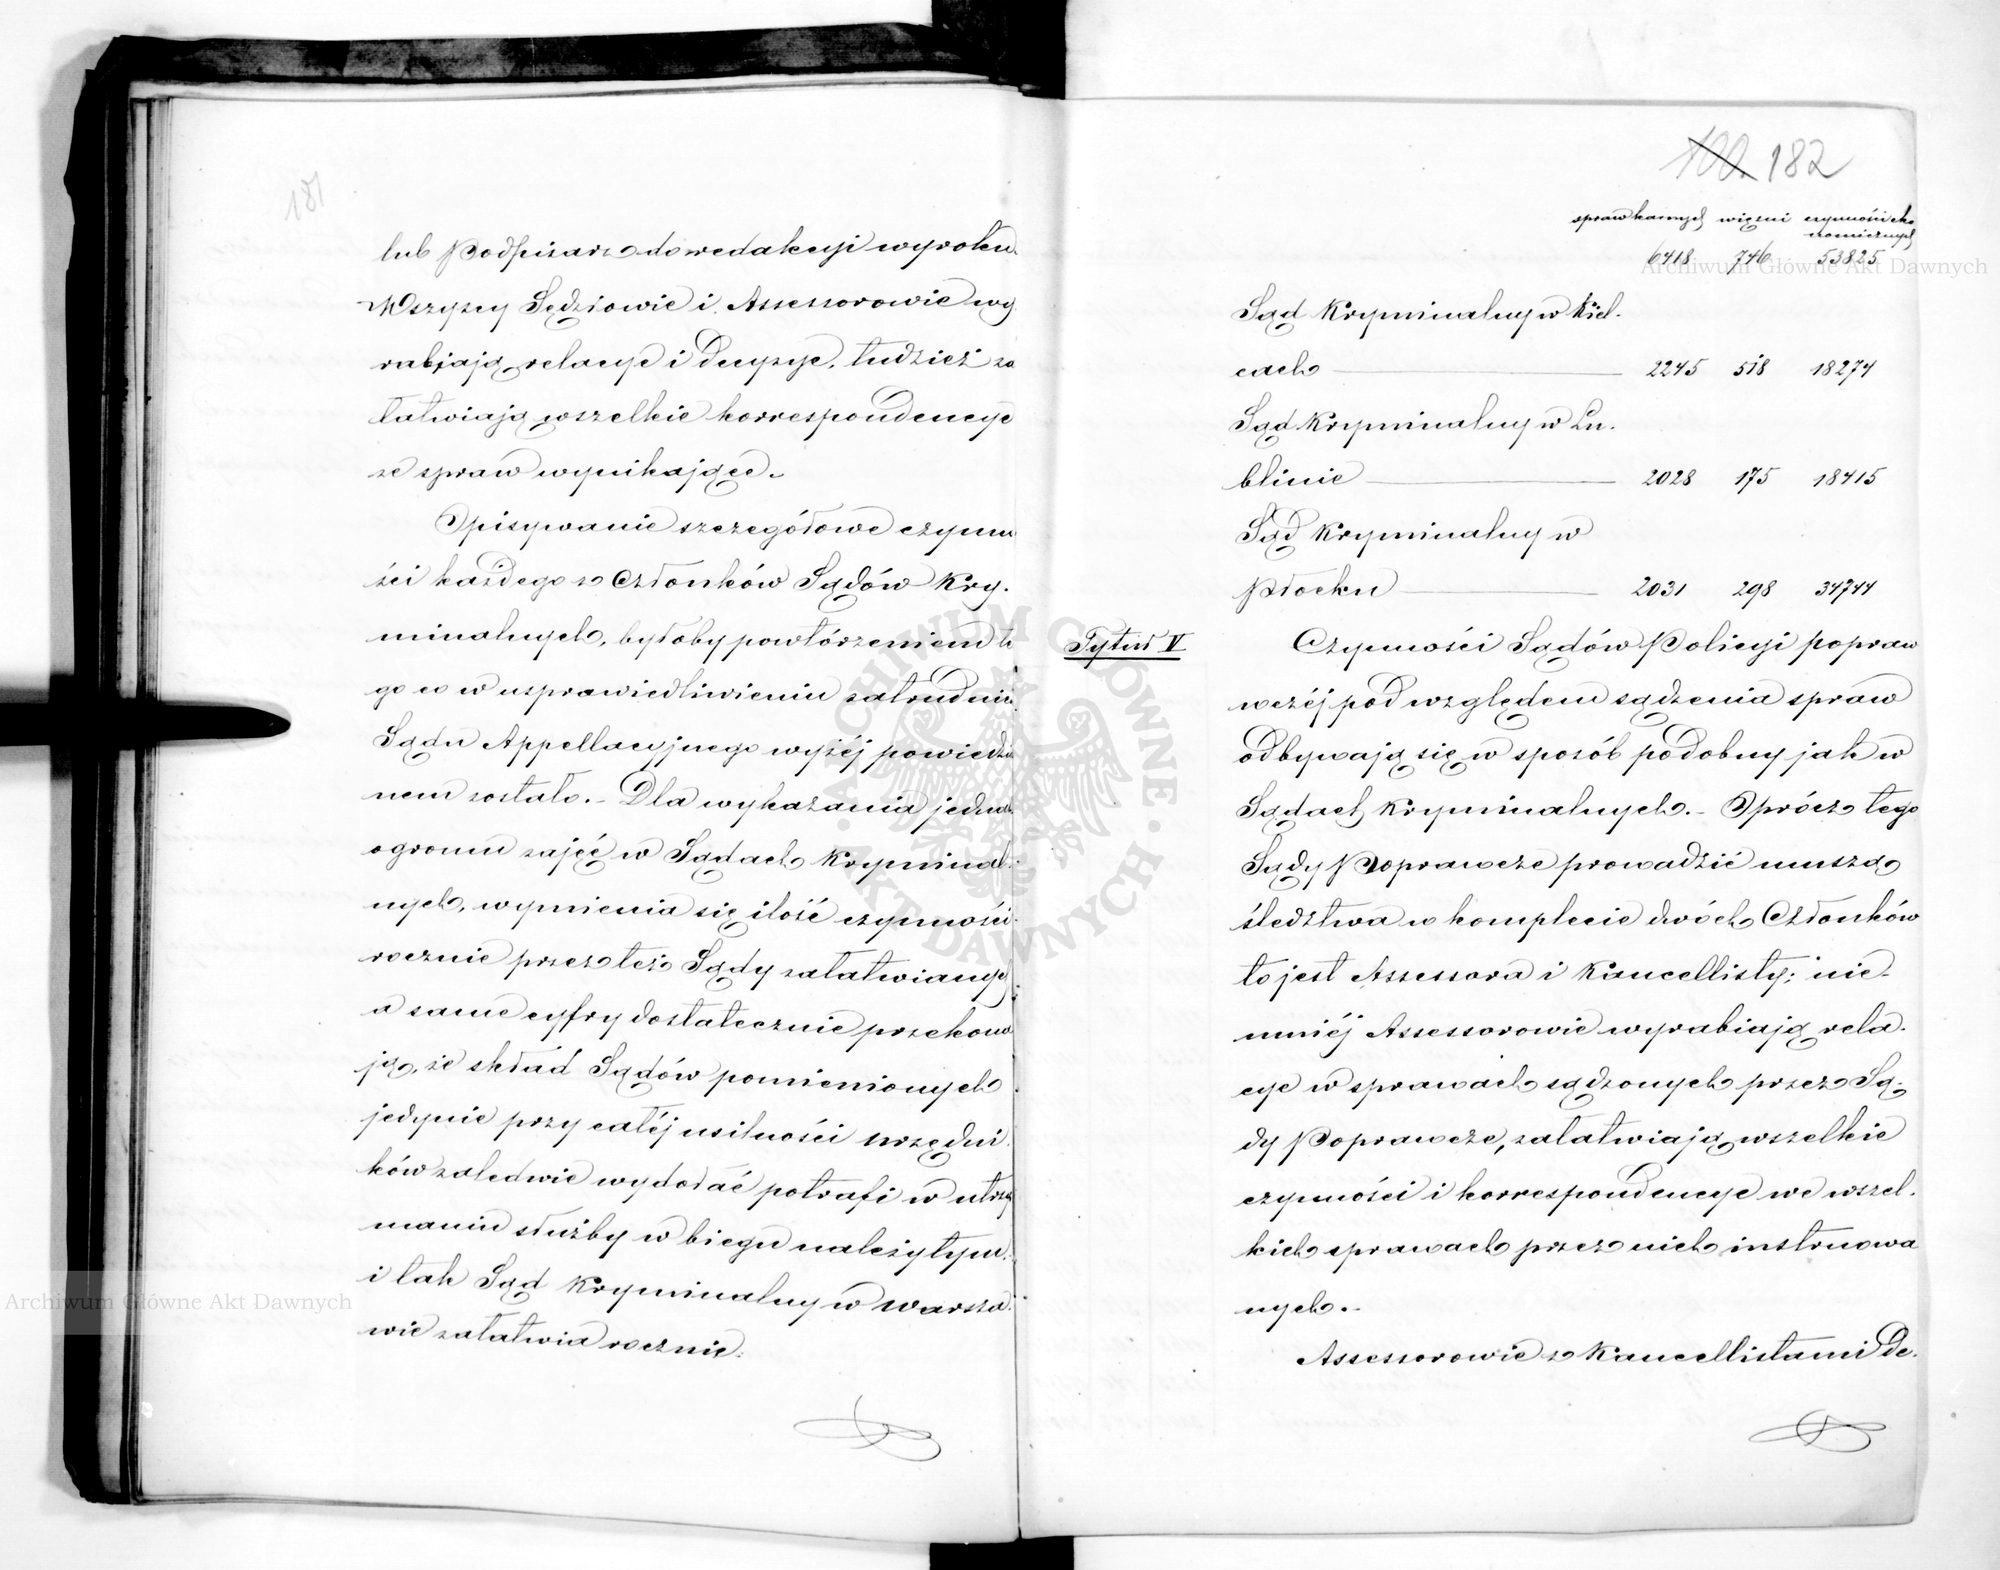 181
lub Podpisarz do redakcyi wyroku.
Wszyscy Sędziowie i Assessorowie wy
rabiają relacye i decyzye, tudzież za
łatwiają wszelkie korrespondencye
ze spraw wynikające.
Opisywanie szczegółowe czynno
ści każdego z Członków Sądów Kry.
minalnych, byłoby powtórzeniem te
go co w usprawiedliwieniu zatrudnień
Sądu Appellacyjnego wyżéj powiedzia
nem zostało.- Dla wykazania jednak
ogromu zajęć w Sądach Kryminal-
nych, wymienia się ilość czynności
rocznie przez też Sądy załatwianych
a same cyfry dostatecznie przekonw
ją, że skład Sądów pomienionych
jedynie przy całéj usilności urzędni.
ków zaledwie wydołać potrafi w utrzy
maniu służby w biegu należytym.
i tak Sąd Kryminalny w Warsza.
wie załatwia rocznie.
100. 182
spraw karnych więzni czynności eko
nomicznych
6418 746 53825
Sąd Kryminalny w Kiel.
cach 2245 518 18274
Sąd Kryminalny w Lu.
blinie 2028 175 18415
Sąd Kryminalny w
Płocku 2031 298 34744
Tytuł V
Czynności Sądów Policyi popraw
wczéj pod względem sądzenia spraw
odbywają się w sposób podobny jak w
Sądach Kryminalnych.- Oprócz tego
Sądy Poprawcze prowadzić muszą
śledztwa w komplecie dwóch Członków
to jest Assessora i Kancellisty; nie-
mniéj Assessorowie wyrabiają rela.
cye w sprawach sądzonych przez Są-
dy Poprawcze, załatwiają wszelkie
czynności i korrespondencye we wszel.
kich sprawach przez nich instruowa
nych.-
Assessorowie z Kancellistami De.
Archiwum Główne Akt Dawnych
Archiwum Główne Akt Dawnych
ARCHIWUM GŁÓWNE · AKT DAWNYCH ·